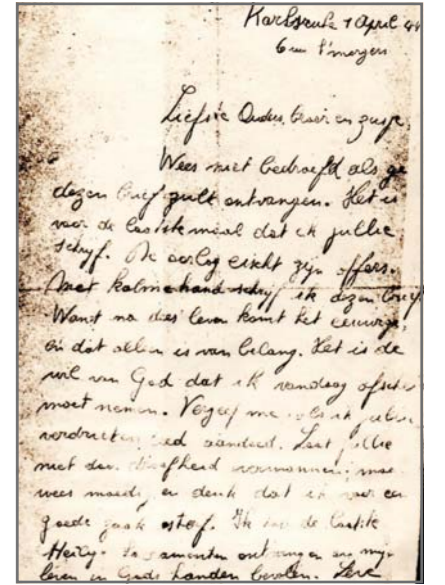 Karlsruhe 1 April 44
6 uur 's morgens
Liefste Ouders, broer en zusje,
Wees niet bedroefd als ge
dezen brief zult ontvangen. Het is
voor de laatste maal dat ik jullie
schrijf. De oorlog eischt zijn offers.
Met kalme hand schrijf ik dezen brief
Want na dees leven komt het eeuwige,
en dat alleen is van belang. Het is de
wil van God dat ik vandaag afscheid
moet nemen. Vergeef me als ik jullie
verdriet aandeed. Laat jullie
niet door droefheid overmannen, maar
wees moedig en denk dat ik voor een
goede zaak stierf. Ik de laatste
Heilig. Sacramenten ontvangen en mijn
leven in Gods handen bevolen.